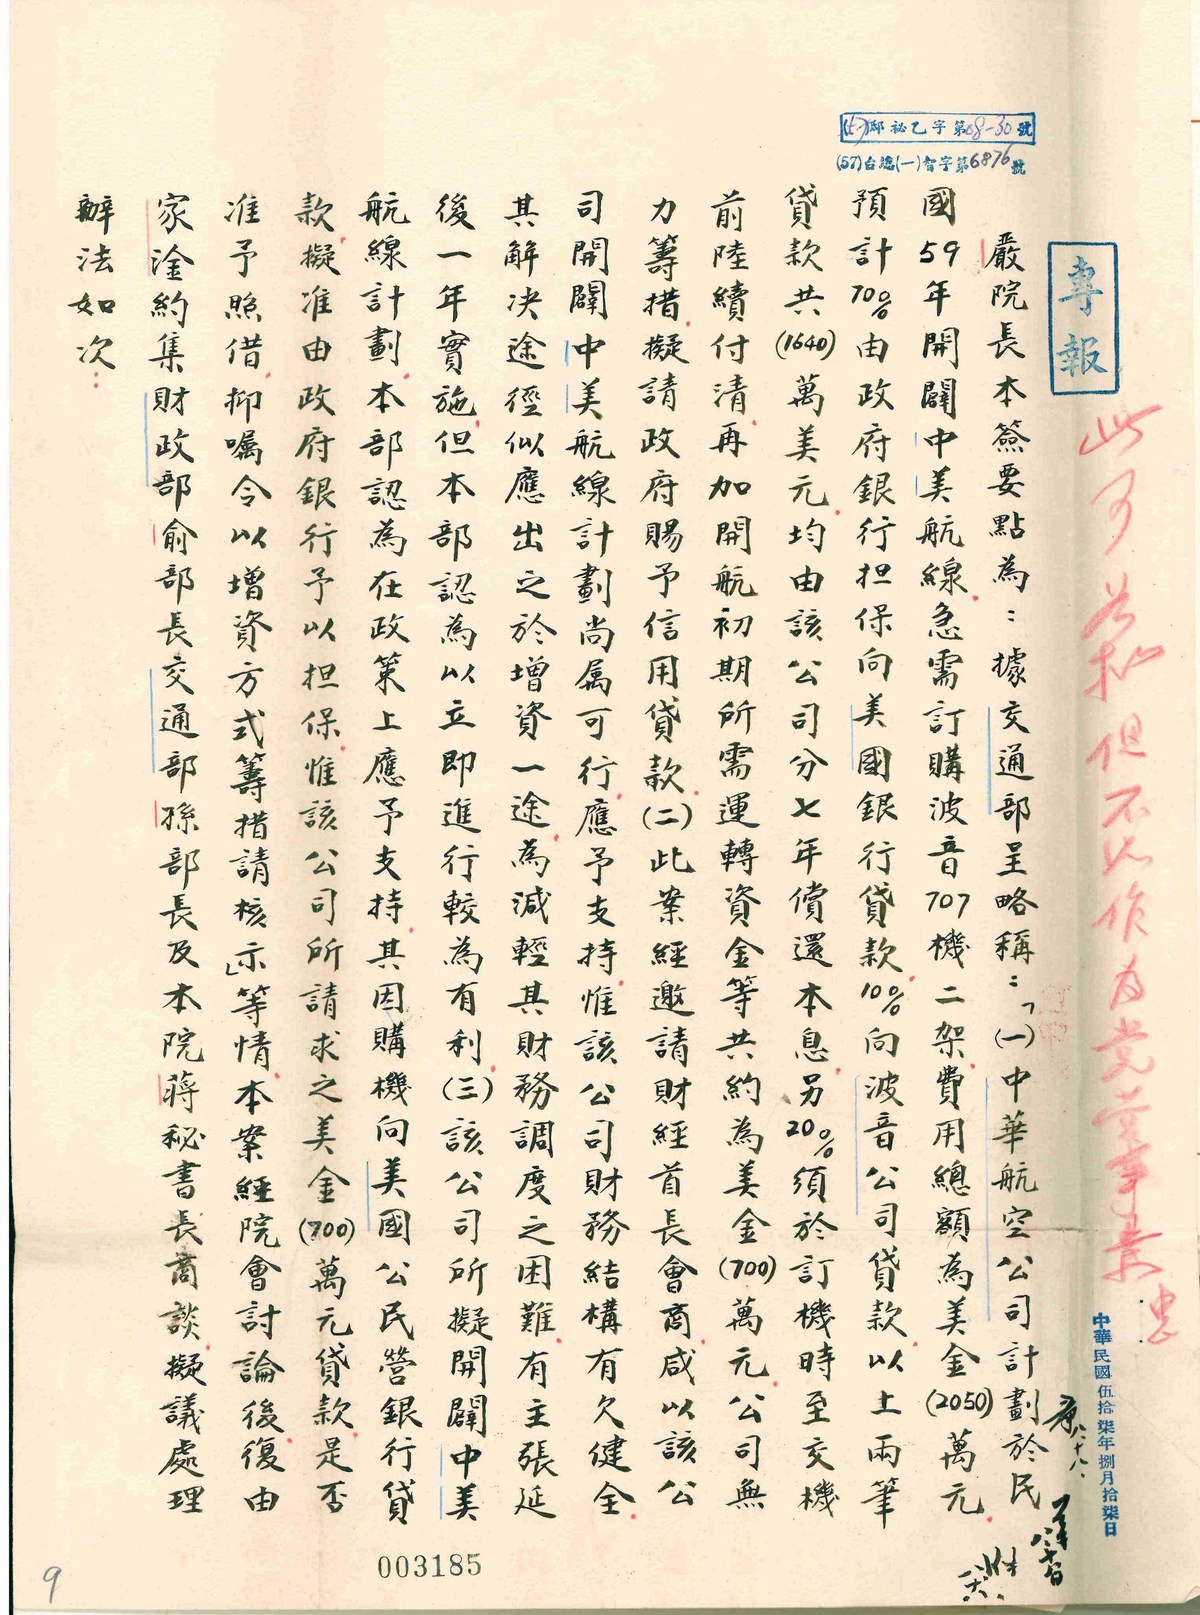 專報
此可照批但不必作為黨營事業
中華民國伍拾柒年捌月拾柒日
(57)邸祕乙字第08-30號
(57)台總(一)智字第6876號
嚴院長本簽要點為：據交通部呈略稱：「(一)中華航空公司計劃於民
國59年開闢中美航線急需訂購波音707機二架費用總額為美金(2050)萬元
預計70%由政府銀行担保向美國銀行貸款10%向波音公司貸款以上兩筆
貸款共(1640)萬美元均由該公司分七年償還本息另20%須於訂機時至交機
前陸續付清再加開航初期所需運轉資金等共約為美金(700)萬元公司無
力籌措擬請政府賜予信用貸款(二)此案經邀請財經首長會商咸以該公
司開闢中美航線計劃尚属可行應予支持惟該公司財務結構有欠健全
其解决途徑似應出之於增資一途為減輕其財務調度之困難有主張延
後一年實施但本部認為以立即進行較為有利(三)該公司所擬開闢中美
航線計劃本部認為在政策上應予支持其因購機向美國公民營銀行貸
款擬准由政府銀行予以担保惟該公司所請求之美金(700)萬元貸款是否
准予照借抑囑令以增資方式籌措請核示」等情本案經院會討論後復由
家淦約集財政部俞部長交通部孫部長及本院蔣秘書長商談擬議處理
辦法如次：
003185
9